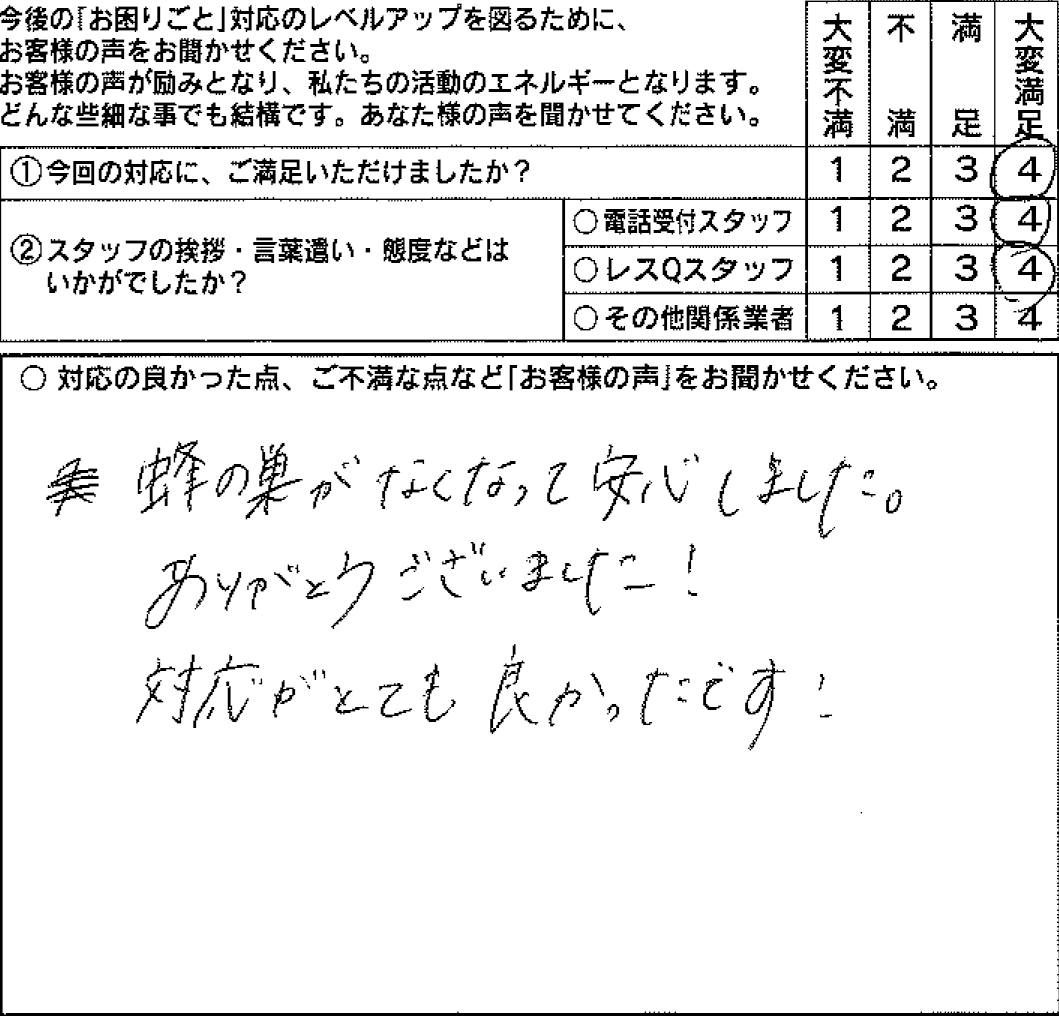 今後の「お困りごと」対応のレベルアップを図るために、
お客様の声をお聞かせください。
お客様の声が励みとなり、私たちの活動のエネルギーとなります。
どんな些細な事でも結構です。あなた様の声を聞かせてください。
大変不満 不満 満足 大変満足
①今回の対応に、ご満足いただけましたか? 1 2 3 4
②スタッフの挨拶・言葉遣い・態度などは
いかがでしたか?
○電話受付スタッフ 1 2 3 4
○レスQスタッフ 1 2 3 4
○その他関係業者 1 2 3 4
○ 対応の良かった点、ご不満な点など「お客様の声」をお聞かせください。
蜂の巣がなくなって安心しました。
ありがとうございました!
対応がとても良かったです!